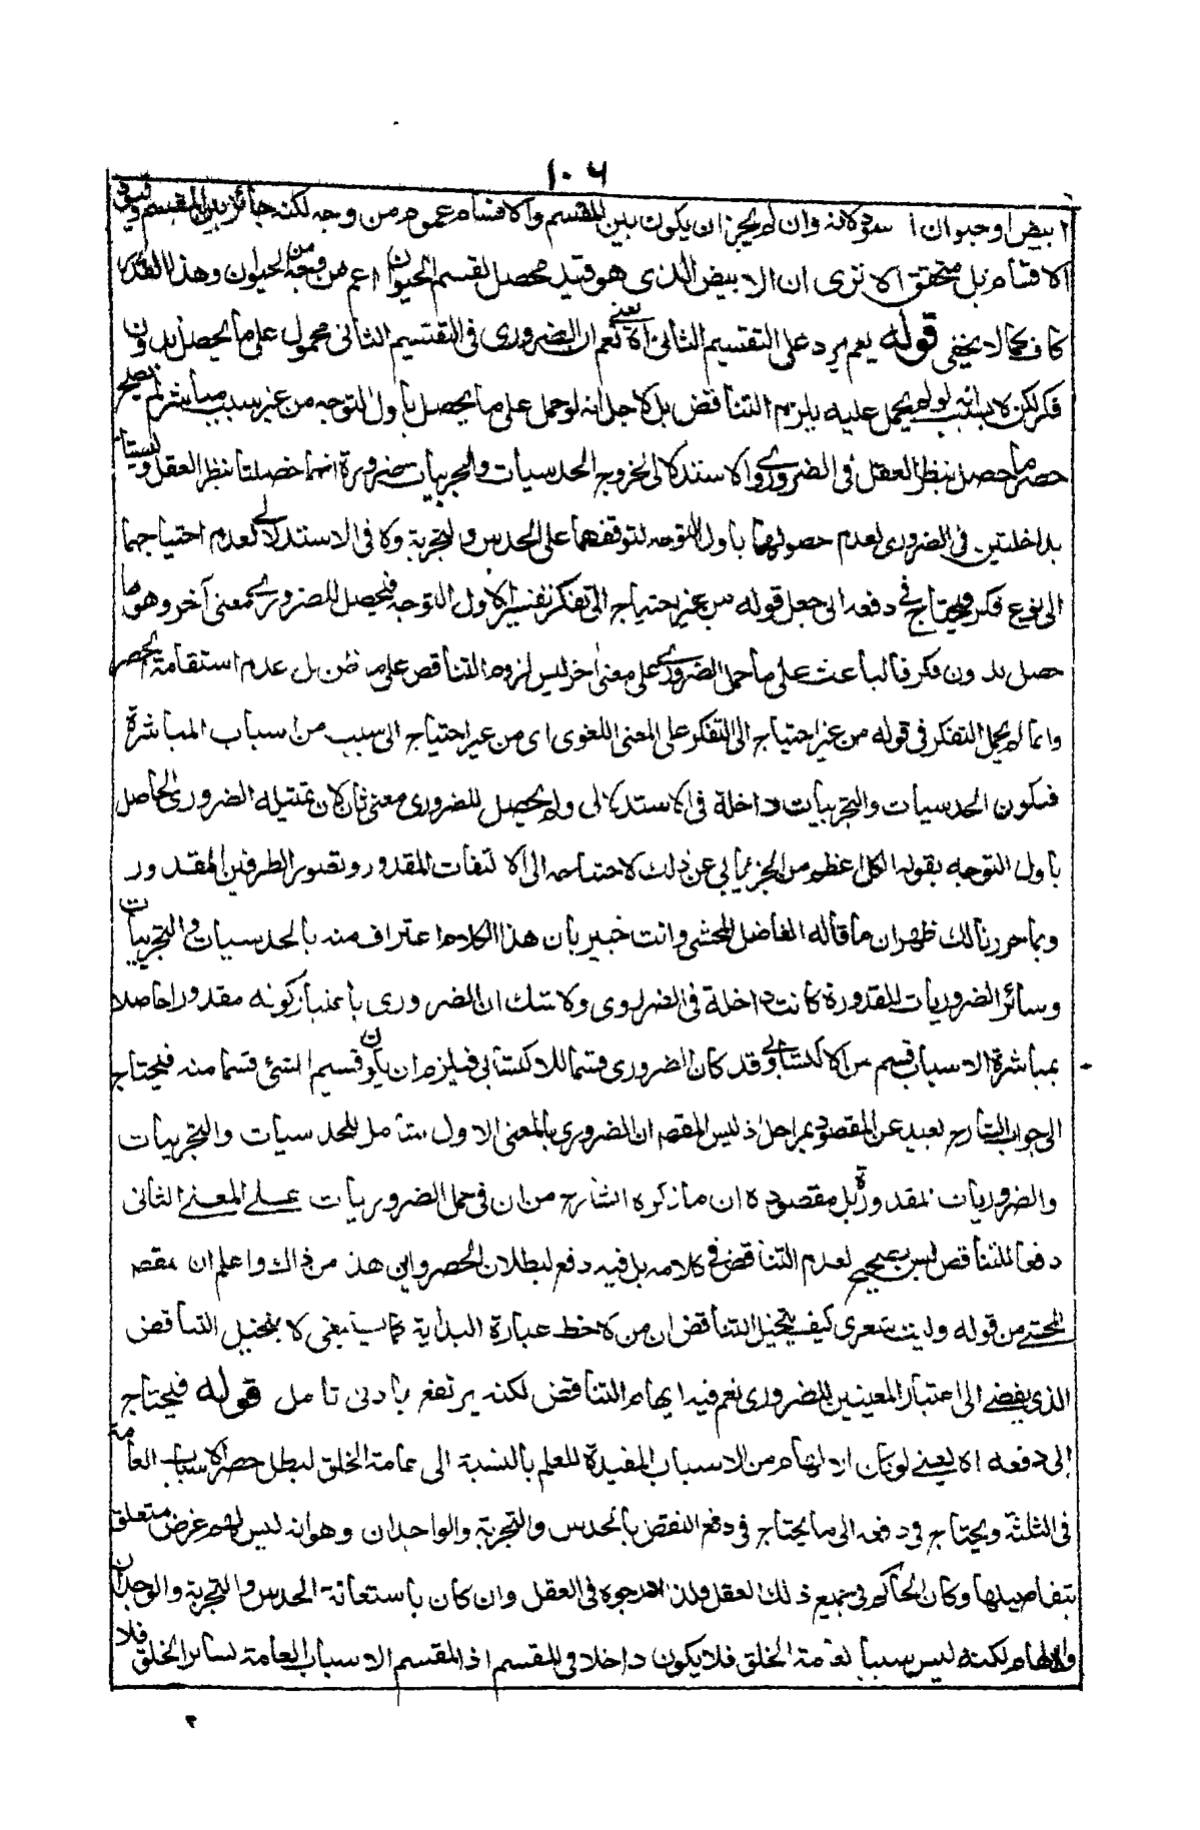 ١٠٦
ابيض او حيوان اسود لانه وان لم يجز ان يكون بين المقسم والاقسام عموم من وجه لكنه جائز بين المقسم وقيود
الاقسام بل متحقق الا ترى ان الابيض الذى هو قيد محصل لقسم الحيوان اعم من وجه من الحيوان وهذا القدر
كاف كما لا يخفى قوله نعم يرد على التقسيم الثانى اه يعنى نعم ان الضرورى فى التقسيم الثانى محمول على ما يحصل بدون
فكر لكن لا بسبب انه لو لم يحمل عليه يلزم التناقض بل لاجل انه لو حمل على ما يحصل باول التوجه من غير سبب مباشر لم يصلح
حصر ما حصل بنظر العقل فى الضرورى والاستدلالى لخروج الحدسيات والتجربيات ضرورة انهما حصلتا بنظر العقل وليستا
بداخلتين فى الضرورى لعدم حصولهما باول التوجه لتوقفهما على الحدس والتجربة ولا فى الاستدلالى لعدم احتياجهما
الى نوع فكر فيحتاج فى دفعه الى جعل قوله من غير احتياج الى تفكر تفسيرا لاول التوجه فيحصل للضرورى معنى آخر وهو ما
حصل بدون فكر فالباعث على ما حمل الضرورى على معنى اخر ليس لزوم التناقص على ما ظن بل عدم استقامة الحصر
وانما لم يحمل التفكر فى قوله من غير احتياج الى التفكر على المعنى اللغوى اى من غير احتياج الى سبب من اسباب المباشرة
فيكون الحدسيات والتجربيات داخلة فى الاستدلالى ولم يحصل للضرورى معنى ثان لان تمثيله الضرورى الحاصل
باول التوجه بقوله الكل اعظم من الجزء يابى عن ذلك لاحتياجه الى الالتفات المقدور وتصور الطرفين المقدور
وبما حررنا لك ظهر ان ما قاله الفاضل المحشى وانت خبير بان هذا الكلام اعتراف منه بالحدسيات والتجربيات
وسائر الضروريات المقدورة كانت داخلة فى الضرورى ولا شك ان الضرورى باعتبار كونه مقدورا حاصلا
بمباشرة الاسباب قسم من الاكتسابى وقد كان الضرورى قسما للاكتسابى فيلزم ان يكون قسيم الشئ قسما منه فيحتاج
الى جواب الشارح لعبيد عن المقصود بمراحل اذ ليس المقصـ ان الضرورى بالمعنى الاول شامل للحدسيات والتجربيات
والضروريات المقدورة بل مقصوده ان ما ذكره الشارح من ان فى حمل الضروريات على المعنى الثانى
دفعا للتناقص ليس بصحيح لعدم التناقض فى كلامه بل فيه دفع لبطلان الحصر واين هذا من ذاك واعلم ان مقصـ
المحشى من قوله وليت شعرى كيف يتخيل التناقض ان من لاحظ عبارة البداية كما ينبغى لا يتخيل التناقض
الذى يفضى الى اعتبار المعينين للضرورى نعم فيه ايهام التناقض لكنه يرتفع بادنى تامل قوله فيحتاج
الى دفعه اه يعنى لو كان الالهام من الاسباب المفيدة للعلم بالنسبة الى عامة الخلق لبطل حصر الاسباب العامة
فى الثلثة ويحتاج فى دفعه الى ما يحتاج فى دفع النقض بالحدس والتجربة والواجدان وهو انه ليس لهم غرض متعلق
بتفاصيلها وكان الحاكم فى جميع ذلك العقل فلذا ادرجوه فى العقل وان كان باستعانة الحدس والتجربة والوجدان
والالهام لكنه ليس سببا لعامة الخلق فلا يكون داخلا فى المقسم اذ المقسم الاسباب العامة لسائر الخلق فلا